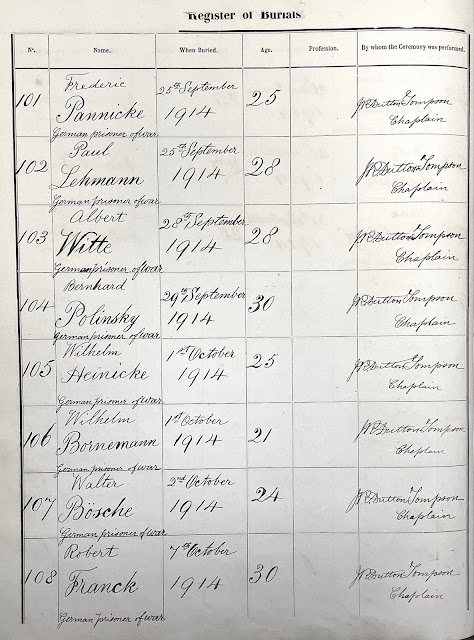 Register of Burials
No. Name. When Buried. Age. Profession. By whom the Ceremony was performed.
Frederic 25th September
101 Pannicke 1914 25 Dutton Tompson
German prisoner of war Chaplain
Paul 25th September
102 Lehmann 1914 28 Dutton Tompson
German prisoner of war Chaplain
Albert 28th September
103 Witte 1914 28 Dutton Tompson
German prisoner of war Chaplain
Bernhard 29th September
104 Polinsky 1914 30 Dutton Tompson
German prisoner of war Chaplain
Wilhelm 1st October
105 Heinicke 1914 25 Dutton Tompson
German prisoner of war Chaplain
Wilhelm 1st October
106 Bornemann 1914 21 Dutton Tompson
German prisoner of war Chaplain
Walter 2nd October
107 Bösche 1914 24 Dutton Tompson
German prisoner of war Chaplain
Robert 7th October
108 Franck 1914 30 Dutton Tompson
German prisoner of war Chaplain